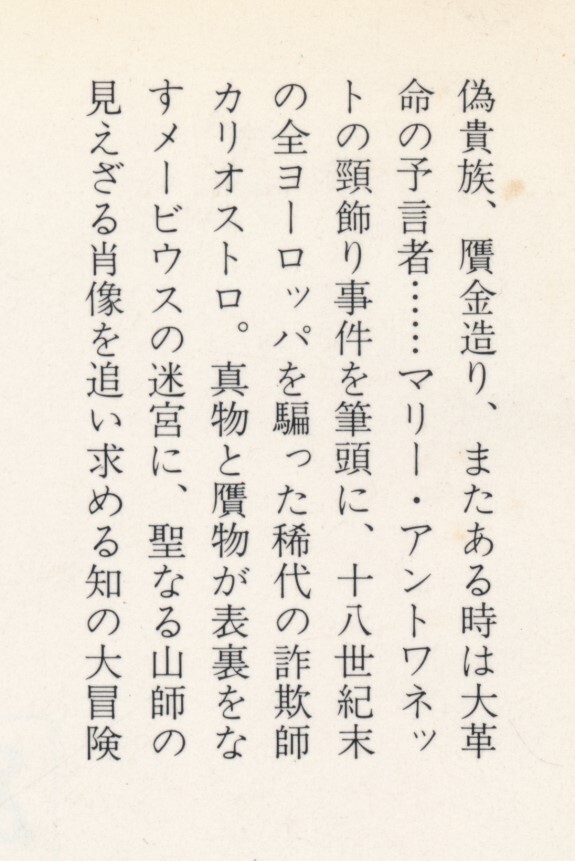 偽貴族、贋金造り、またある時は大革
命の予言者……マリー・アントワネッ
トの頸飾り事件を筆頭に、十八世紀末
の全ヨーロッパを騙った稀代の詐欺師
カリオストロ。真物と贋物が表裏をな
すメービウスの迷宮に、聖なる山師の
見えざる肖像を追い求める知の大冒険